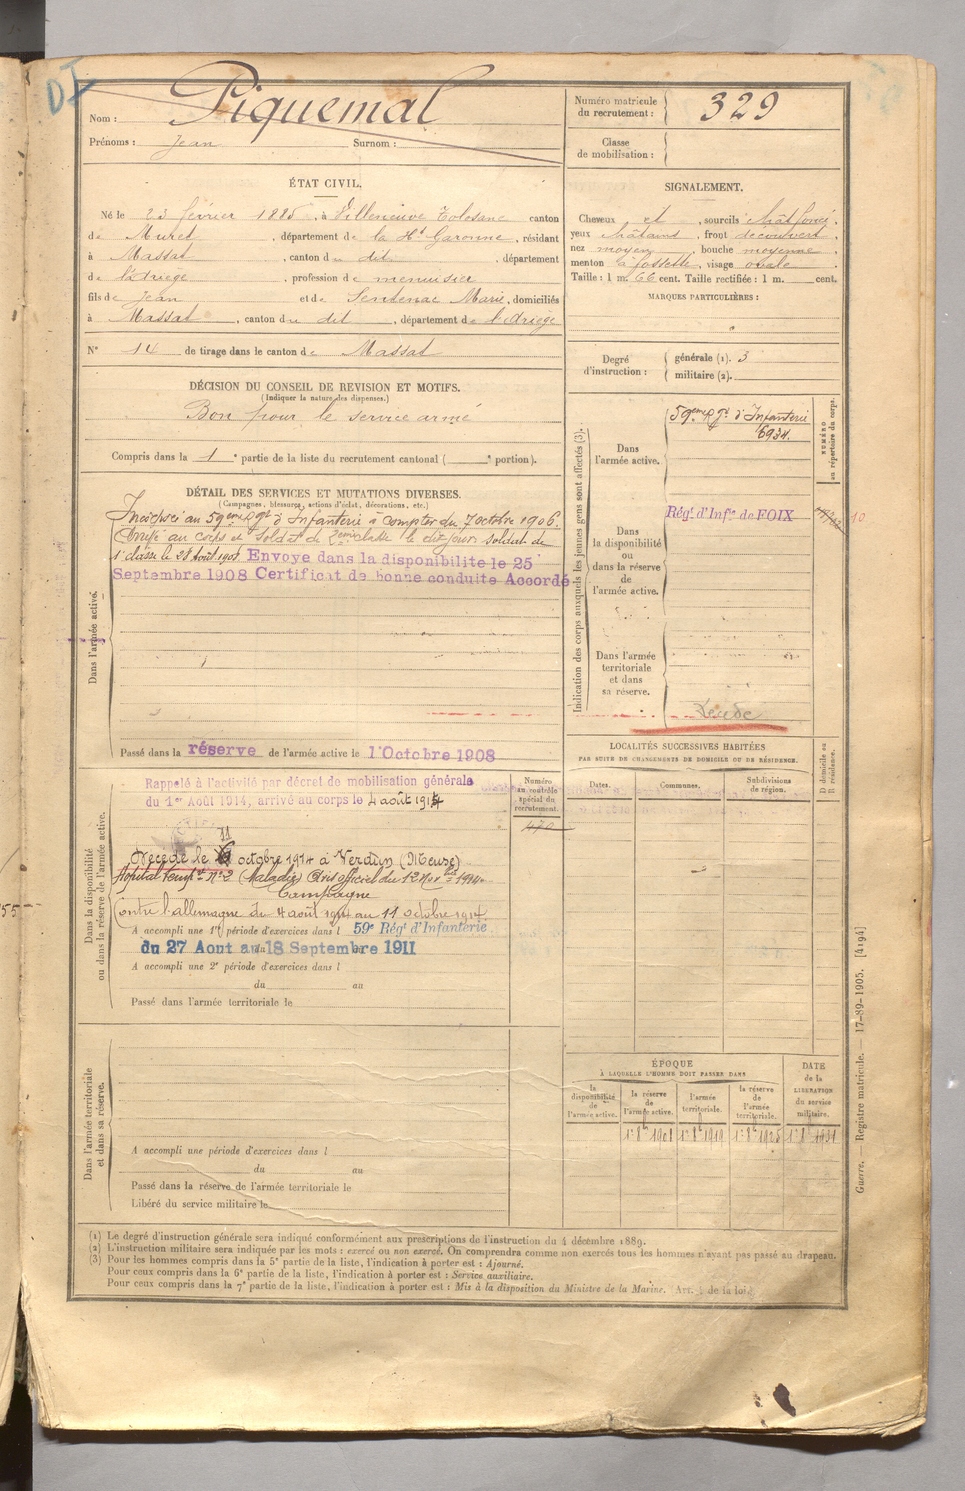 DI
Nom : Piquemal
Prénoms : Jean Surnom :
Numéro matricule du recrutement : 329
Classe de mobilisation :
ÉTAT CIVIL.
Né le 23 février 1885, à Villeneuve Tolosane canton
de Muret, département de la Hte Garonne, résidant
à Massat, canton du dit, département
de l'Ariège, profession de menuisier
fils de Jean et de Sentenac Marie, domiciliés
à Massat, canton du dit, département de l'Ariège
N° 14 de tirage dans le canton de Massat
SIGNALEMENT.
Cheveux et sourcils chât foncé,
yeux châtains, front découvert,
nez moyen, bouche moyenne
menton à fossette, visage ovale
Taille : 1 m. 66 cent. Taille rectifiée : 1 m. cent.
MARQUES PARTICULIÈRES :
Degré d'instruction : générale (1). 3
militaire (2).
DÉCISION DU CONSEIL DE REVISION ET MOTIFS.
(Indiquer la nature des dispenses.)
Bon pour le service armé
Compris dans la 1e partie de la liste du recrutement cantonal ( e portion).
DÉTAIL DES SERVICES ET MUTATIONS DIVERSES.
(Campagnes, blessures, actions d'éclat, décorations, etc.)
Dans l'armée active.
Incorporé au 59eme Rgt d'Infanterie à compter du 7 octobre 1906.
Arrivé au corps et soldat de 2eme classe le dit jour. Soldat de
1e classe le 28 août 1907. Envoye dans la disponibilite le 25
Septembre 1908 Certificat de bonne conduite Accordé
Passé dans la réserve de l'armée active le 1 Octobre 1908
Indication des corps auxquels les jeunes gens sont affectés (3).
NUMÉRO au répertoire du corps.
Dans l'armée active.
59eme Rgt d'Infanterie
6934.
Dans la disponibilité ou dans la réserve de l'armée active.
Régt d'Infie de FOIX
10
Dans l'armée territoriale et dans sa réserve.
Dans la disponibilité ou dans la réserve de l'armée active.
Rappelé à l'activité par décret de mobilisation générale
du 1er Août 1914, arrivé au corps le 4 août 1914
Numéro au contrôle spécial du recrutement.
470
11
Décédé le octobre 1914 à Verdun (Meuse)
Hôpital Tempre N°2 (Maladie) Avis officiel du 12 Nov bre 1914.
Campagne
Contre l'allemagne du 4 août 1914 au 11 octobre 1914.
A accompli une 1re période d'exercices dans l 59e Régt d'Infanterie
du 27 Aout au 18 Septembre 1911
A accompli une 2e période d'exercices dans l
du au
Passé dans l'armée territoriale le
LOCALITÉS SUCCESSIVES HABITÉES
PAR SUITE DE CHANGEMENTS DE DOMICILE OU DE RÉSIDENCE.
Dates. Communes. Subdivisions de région. D domicile ou R résidence.
Dans l'armée territoriale et dans sa réserve.
A accompli une période d'exercices dans l
du au
Passé dans la réserve de l'armée territoriale le
Libéré du service militaire le
ÉPOQUE
À LAQUELLE L'HOMME DOIT PASSER DANS
la disponibilité de l'armée active. la réserve de l'armée active. l'armée territoriale. la réserve de l'armée territoriale.
DATE de la LIBÉRATION du service militaire.
1er 8bre 1908 1er 8bre 1919 1er 8bre 1925 1er 8bre 1931
(1) Le degré d'instruction générale sera indiqué conformément aux prescriptions de l'instruction du 4 décembre 1889.
(2) L'instruction militaire sera indiquée par les mots : exercé ou non exercé. On comprendra comme non exercés tous les hommes n'ayant pas passé au drapeau.
(3) Pour les hommes compris dans la 5e partie de la liste, l'indication à porter est : Ajourné.
Pour ceux compris dans la 6e partie de la liste, l'indication à porter est : Service auxiliaire.
Pour ceux compris dans la 7e partie de la liste, l'indication à porter est : Mis à la disposition du Ministre de la Marine. Art. 4 de la loi.
Guerre. — Registre matricule. — 17-89-1905. [4194]